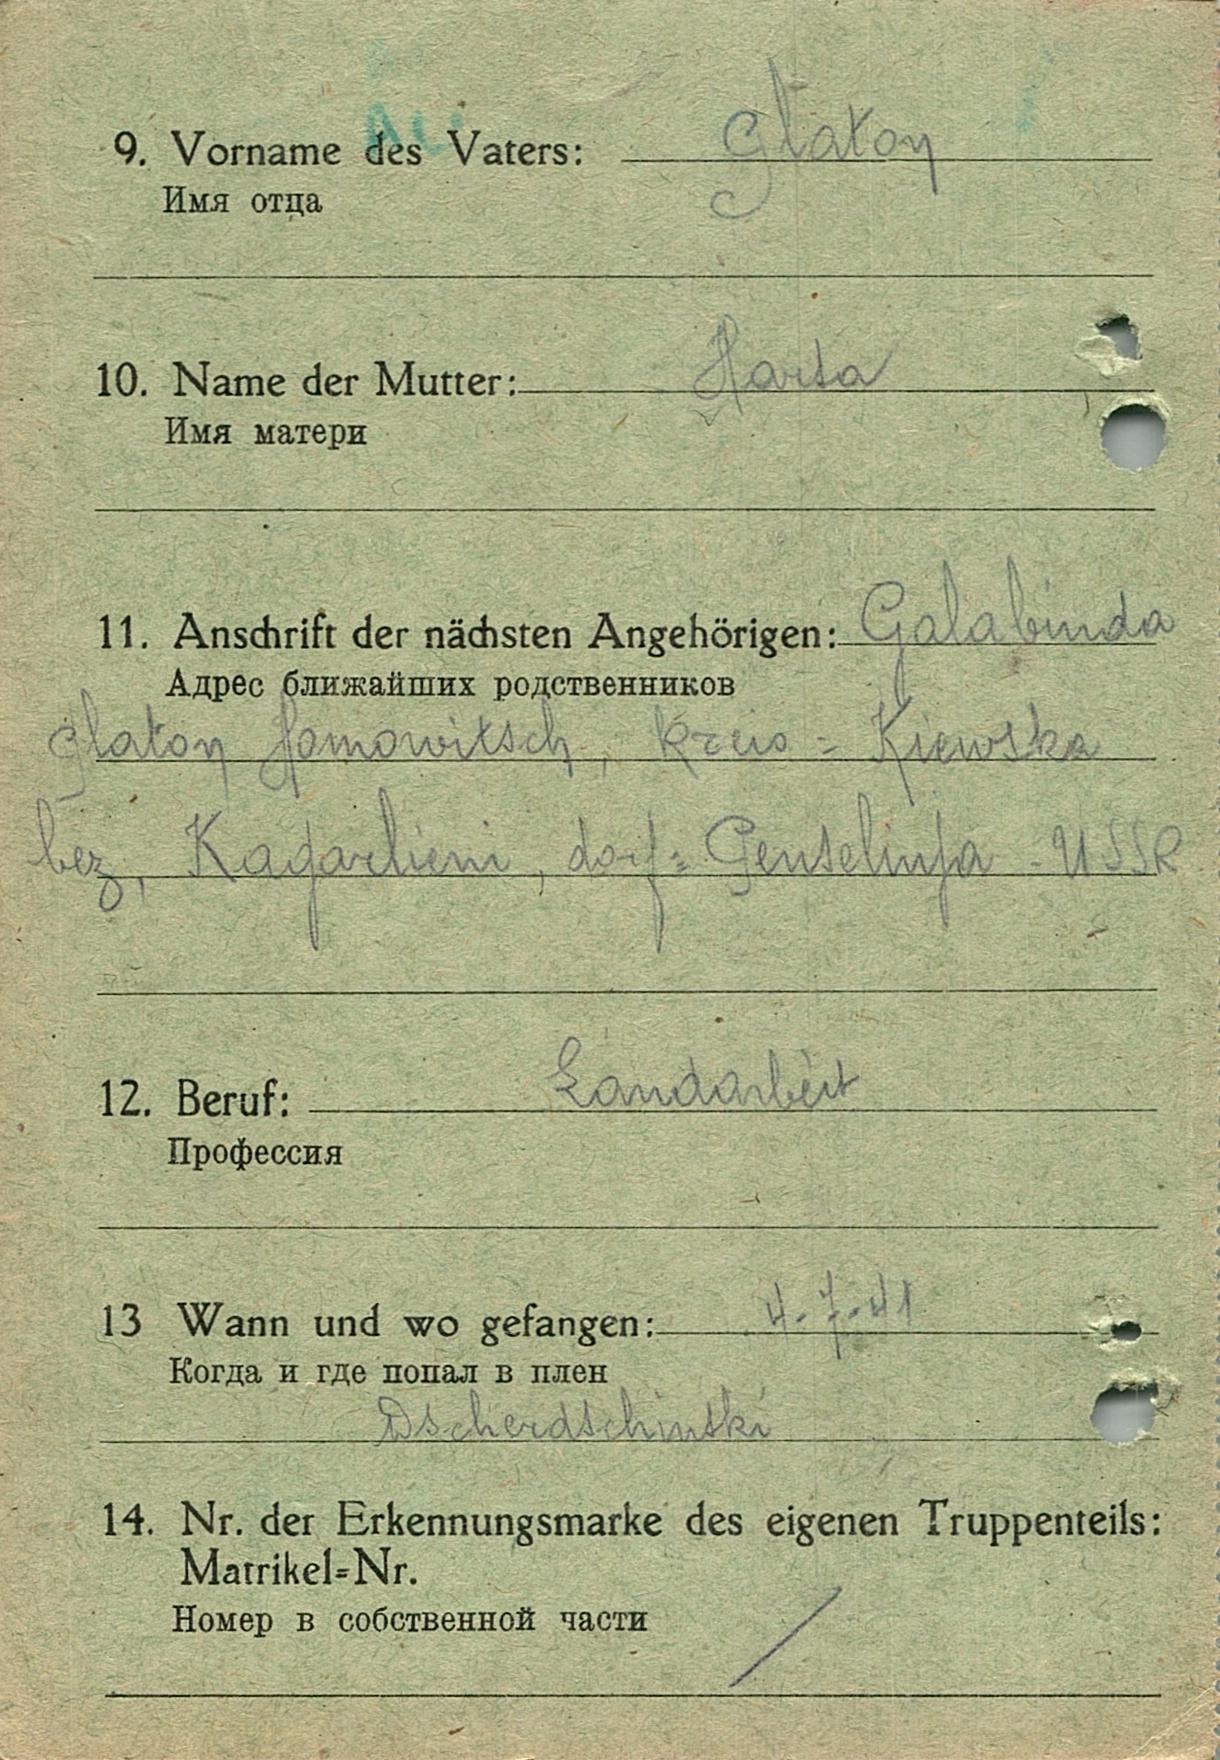 9. Vorname des Vaters: Glaton
Имя отца
10. Name der Mutter: Harta
Имя матери
11. Anschrift der nächsten Angehörigen: Galabinda
Адрес ближайших родственников
Glaton Homowitsch, Kreis = Kiewska
bez, Kagarlieni, dorf = Genselinja - USSR
12. Beruf: Landarbeit
Профессия
13 Wann und wo gefangen: 4-7-41
Когда и где попал в плен
Dscherdschinski
14. Nr. der Erkennungsmarke des eigenen Truppenteils:
Matrikel=Nr.
Номер в собственной части
/